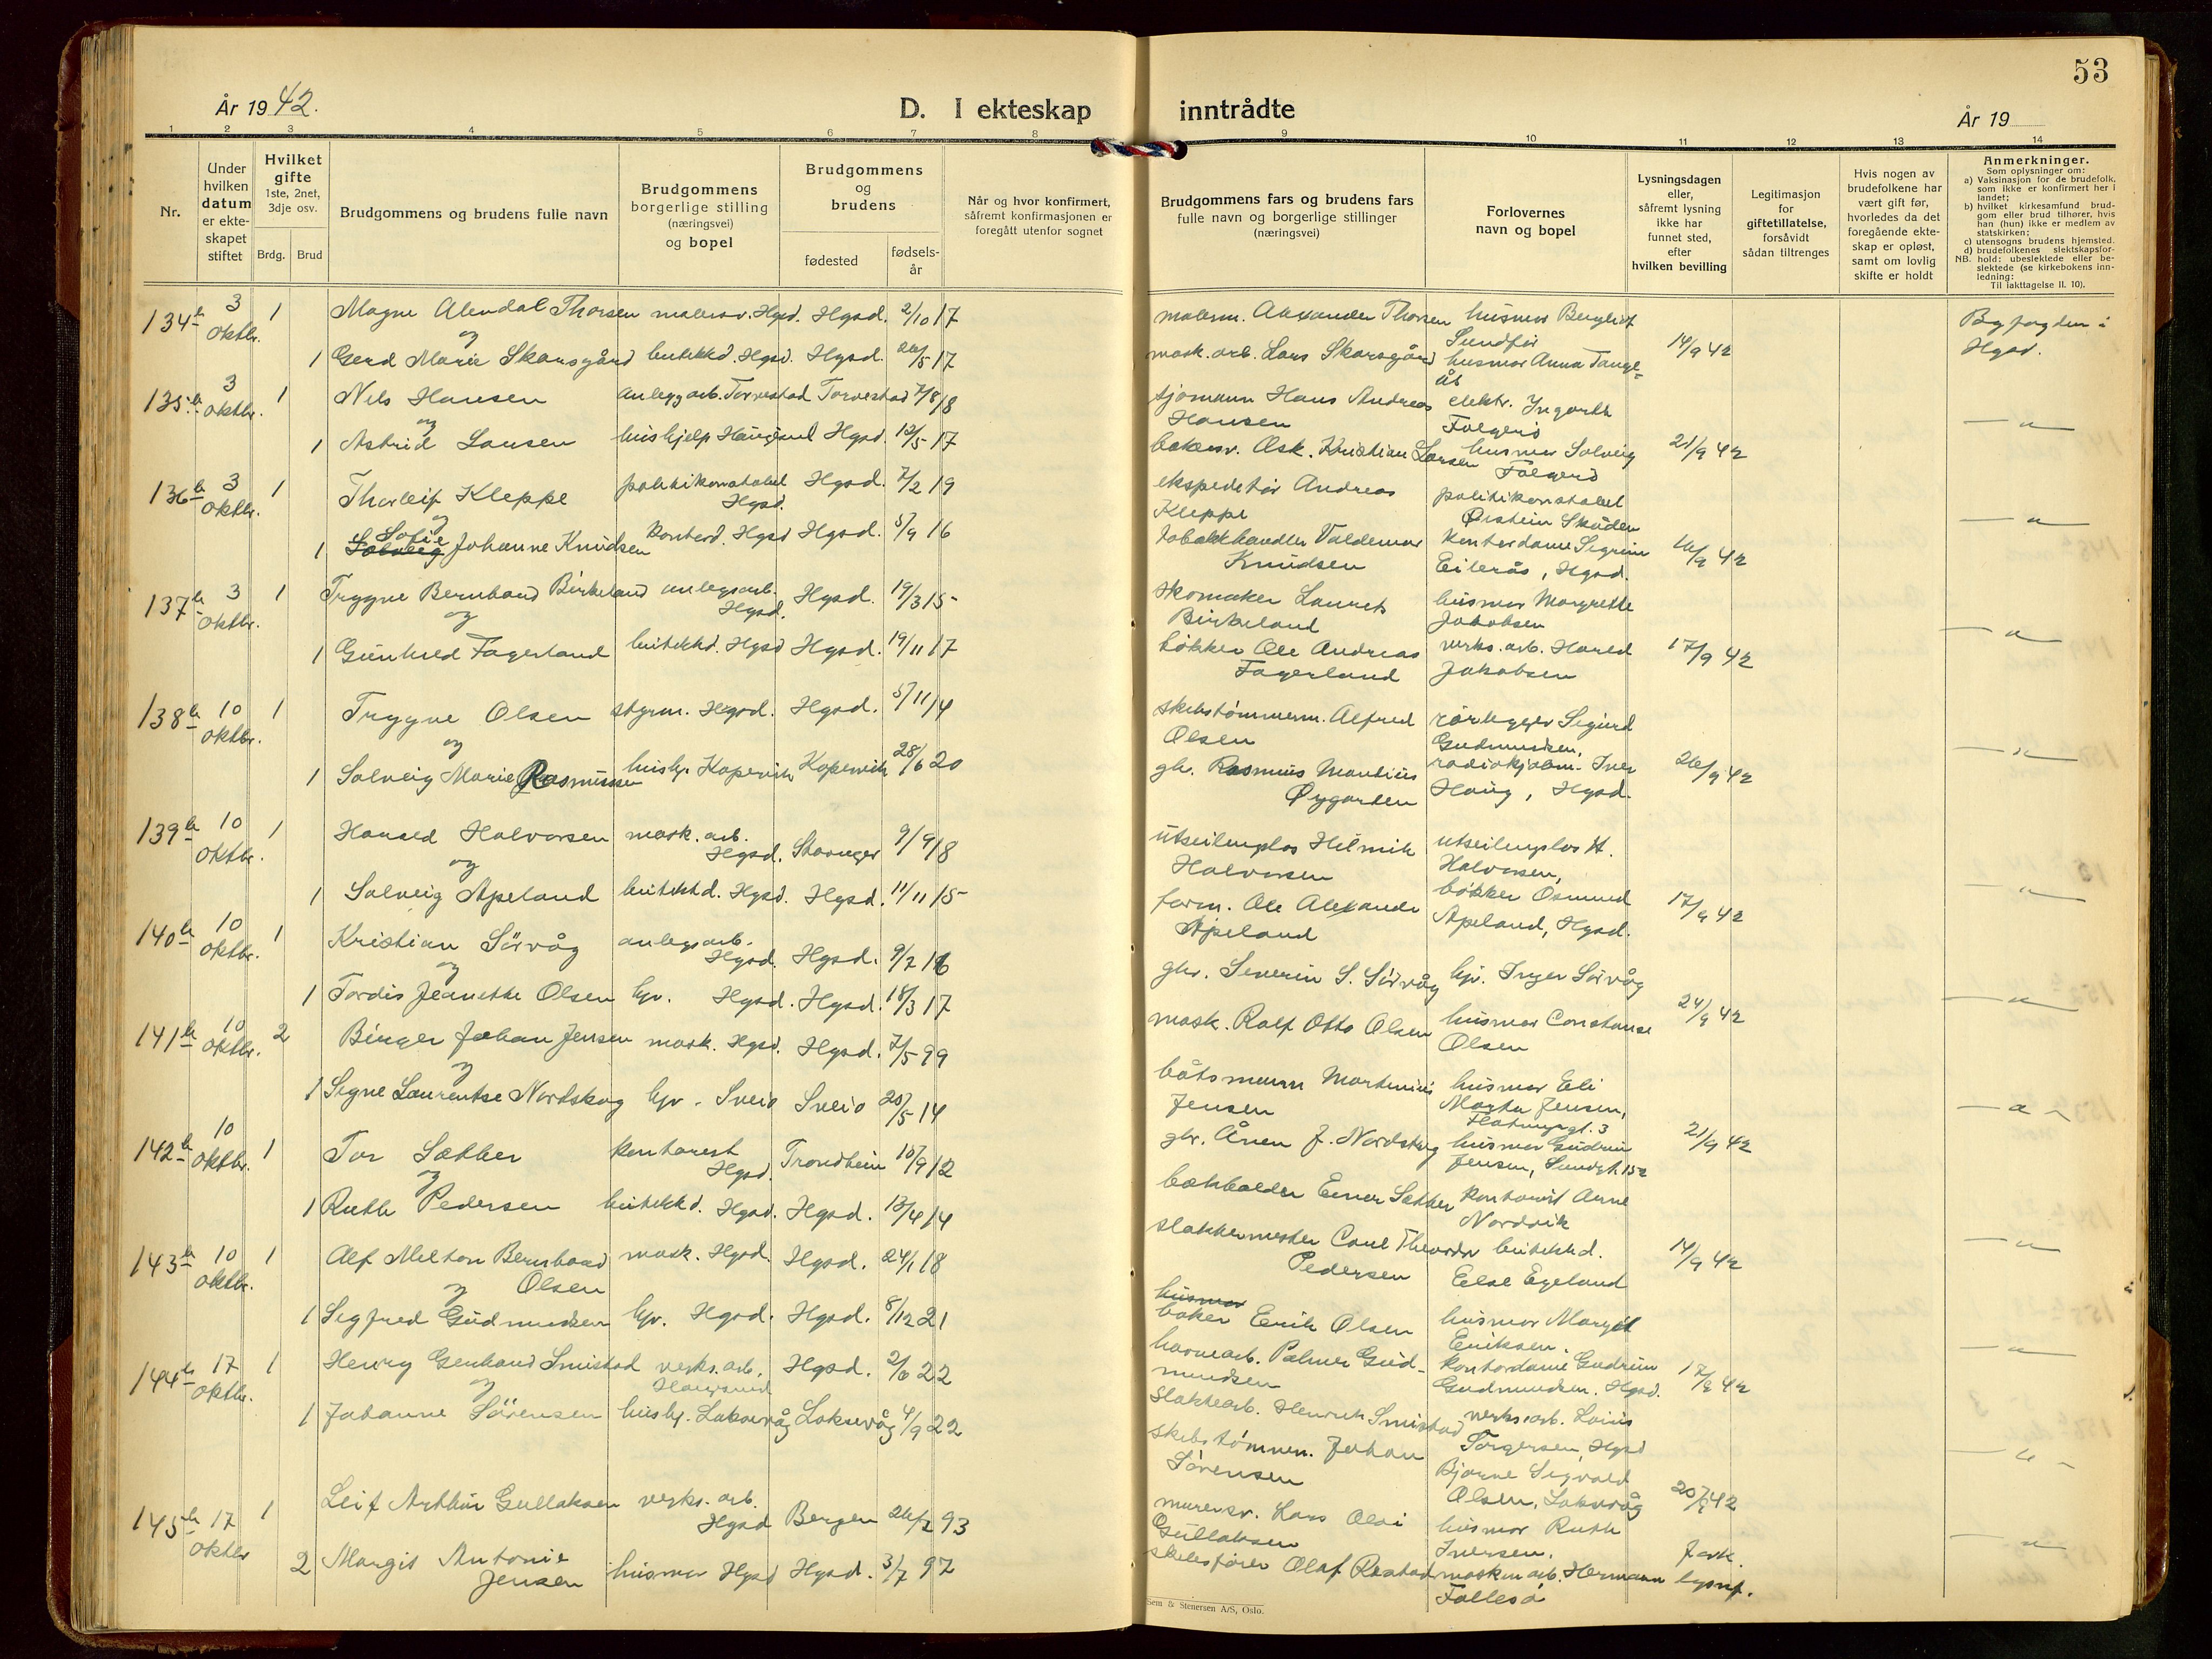 År 1942.
D. I ekteskap inntrådte
53
År 19
1 2 3 4 5 6 7 8 9 10 11 12 13 14
Nr.
Under
hvilken
datum
er ekte-
skapet
stiftet
Hvilket
gifte
1ste, 2net,
3dje osv.
Brdg. Brud
Brudgommens og brudens fulle navn
Brudgommens
borgerlige stilling
(næringsvei)
og bopel
Brudgommens
og
brudens
fødested
fødsels-
år
Når og hvor konfirmert,
såfremt konfirmasjonen er
foregått utenfor sognet
Brudgommens fars og brudens fars
fulle navn og borgerlige stillinger
(næringsvei)
Forlovernes
navn og bopel
Lysningsdagen
eller,
såfremt lysning
ikke har
funnet sted,
efter
hvilken bevilling
Legitimasjon
for
giftetillatelse,
forsåvidt
sådan tiltrenges
Hvis nogen av
brudefolkene har
vært gift før,
hvorledes da det
foregående ekte-
skap er opløst,
samt om lovlig
skifte er holdt
Anmerkninger.
Som oplysninger om:
a) Vaksinasjon for de brudefolk,
som ikke er konfirmert her i
landet;
b) hvilket kirkesamfund brud-
gom eller brud tilhører, hvis
han (hun) ikke er medlem av
statskirken;
c) utensogns brudens hjemsted.
d) brudefolkenes slektskapsfor-
NB. hold: ubeslektede eller be-
slektede (se kirkebokens inn-
ledning:
Til iakttagelse II. 10).
134 3 oktbr. 1 Magne Alendal Thorsen malersv. Hgsd. Hgsd. 2/10 17
og
1 Gerd Marie Skarsgård butikkd. Hgsd. Hgsd. 26/5 17
135 3 oktbr. 1 Nils Hansen anleggarb. Torvestad Torvestad 7/8 18
og
1 Astrid Larsen hushjelp Haugesund Hgsd. 12/5 17
136 3 oktbr. 1 Thorleif Kleppe politikonstabel Hgsd. Hgsd. 7/2 19
og
1 Sofie Solveig Johanne Knudsen kontord. Hgsd Hgsd. 5/9 16
137 3 oktbr. 1 Trygve Bernhard Birkeland anlegsarb. Hgsd. Hgsd. 19/3 15
og
1 Gunhild Fagerland butikkd. Hgsd Hgsd. 19/11 17
138 10 oktbr. 1 Trygve Olsen styrm. Hgsd. Hgsd. 5/11 14
og
1 Solveig Marie Rasmussen hushj. Kopervik Kopervik 28/6 20
139 10 oktbr. 1 Harald Halvorsen mask. arb. Hgsd. Stavanger 9/9 18
og
1 Solveig Apeland butikkd. Hgsd. Hgsd. 11/11 15
140 10 oktbr. 1 Kristian Sørvåg anlegsarb. Hgsd. Hgsd. 9/7 16
og
1 Tordis Jeanette Olsen hjv. Hgsd. Hgsd. 18/3 17
141 10 oktbr. 2 Birger Johan Jensen mask. Hgsd. Hgsd. 7/5 99
og
1 Signe Laurentse Nordskog hjv. Sveio Sveio 20/5 14
142 10 oktbr. 1 Tor Sæther kontorist Hgsd. Trondheim 10/9 12
og
1 Ruth Pedersen butikkd. Hgsd. Hgsd. 13/4 14
143 10 oktbr. 1 Alf Milton Bernhard Olsen mask. Hgsd. Hgsd. 24/1 18
og
1 Sigfred Gudmundsen hjv. Hgsd. Hgsd. 8/12 21
144 17 oktbr. 1 Henry Gerhard Smistad verks. arb. Haugesund Hgsd. 2/6 22
og
1 Johanne Sørensen hushj. Laksevåg Laksevåg 4/9 22
145 17 oktbr 1 Leif Arthur Gullaksen verks. arb. Hgsd Bergen 26/2 93
2 Margit Antonie Jensen husmor Hgsd Hgsd. 3/7 97
malerm. Alexander Thorsen husmor Bergliot Sundfør
Byfogden i Hgsd.
mask. arb. Lars Skarsgård husmor Anna Tange- 14/9 42
sjømann Hans Andreas Hansen elektr. Ingarth Folgerø
bakersv. Osk. Kristian Larsen husmor Solveig Folgerø 21/9 42
ekspeditør Andreas Kleppe politikonstabel Øistein Skaden
tobakkhandler Valdemar Knudsen kontordame Sigrun Eilerås, Hgsd. 16/9 42
skomaker Laurits Birkeland husmor Margrethe Jakobsen
bøkker Ole Andreas Fagerland verks. arb. Harald Jakobsen 17/9 42
skibstømmerm. Alfred Olsen rørlegger Sigurd Gudmundsen,
gbr. Rasmus Mandius Øygarden Iver Haug, Hgsd. 26/9 42
Halvorsen H. Halvorsen,
form. Ole Alexander Apeland bøkker Osmund Apeland, Hgsd. 17/9 42
gbr. Severin S. Sørvåg hjv. Inger Sørvåg
mask. Ralf Otto Olsen husmor Constanse Olsen 24/9 42
båtsmann Martinius Jensen husmor Eli Marta Jensen,
gbr. Ånen J. Nordskog husmor Gudrun Jensen, Sundgt. 152 21/9 42
bokholder Einar Sæther kontorist Arne Nordvik
slaktermester Carl Theodor Pedersen butikkd. Else Egeland 14/9 42
husmor
baker Erik Olsen husmor Margit Eriksen.
havnearb. Palmer Gud-mundsen kontordame Gudrun Gudmundsen. Hgsd. 17/9 42
slakterarb. Henrik Smistad verks. arb. Louis Torgersen, Hgsd
skibstømmerm. Johan Sørensen Bjarne Sigvald Olsen, Laksevåg 20/9 42
murersv. Lars Olai Gullaksen husmor Ruth Iversen.
skibsfører Olaf Røstad maskinarb. Hermann Fallesø fork. lysn.
Sem & Stenersen A/S, Oslo.